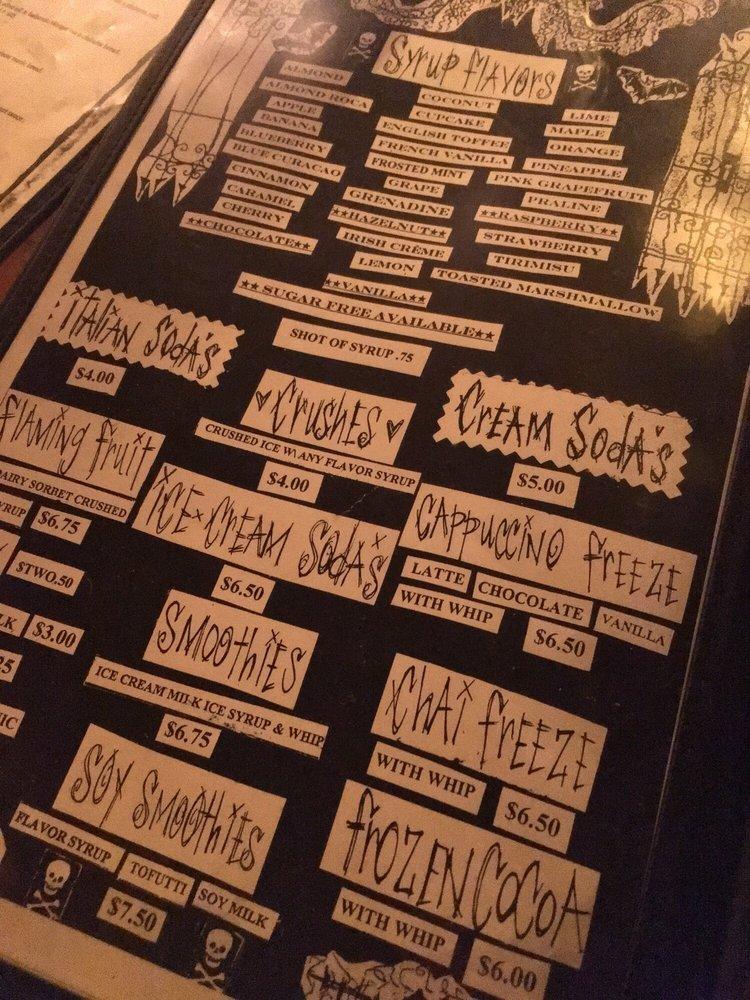 Syrup Flavors
ALMOND
ALMOND ROCA
APPLE
BANANA
BLUEBERRY
BLUE CURACAO
CINNAMON
CARAMEL
CHERRY
**CHOCOLATE**
COCONUT
CUPCAKE
ENGLISH TOFFEE
FRENCH VANILLA
FROSTED MINT
GRAPE
GRENADINE
**HAZELNUT**
IRISH CRÈME
LEMON
LIME
MAPLE
ORANGE
PINEAPPLE
PINK GRAPEFRUIT
PRALINE
**RASPBERRY**
STRAWBERRY
TIRIMISU
TOASTED MARSHMALLOW
**VANILLA**
**SUGAR FREE AVAILABLE**
SHOT OF SYRUP .75
ITALIAN SODA'S
$4.00
CRUSHES
CRUSHED ICE W\ ANY FLAVOR SYRUP
$4.00
CREAM SODA'S
$5.00
FLAMING FRUIT
DAIRY SORBET CRUSHED
SYRUP $6.75
ICE-CREAM SODA'S
$6.50
CAPPUCCINO FREEZE
LATTE CHOCOLATE VANILLA
WITH WHIP $6.50
$TWO.50
LK $3.00
25
IC
SMOOTHIES
ICE CREAM MILK ICE SYRUP & WHIP
$6.75
CHAI FREEZE
WITH WHIP $6.50
SOY SMOOTHIES
FLAVOR SYRUP TOFUTTI SOY MILK
$7.50
FROZEN COCOA
WITH WHIP $6.00